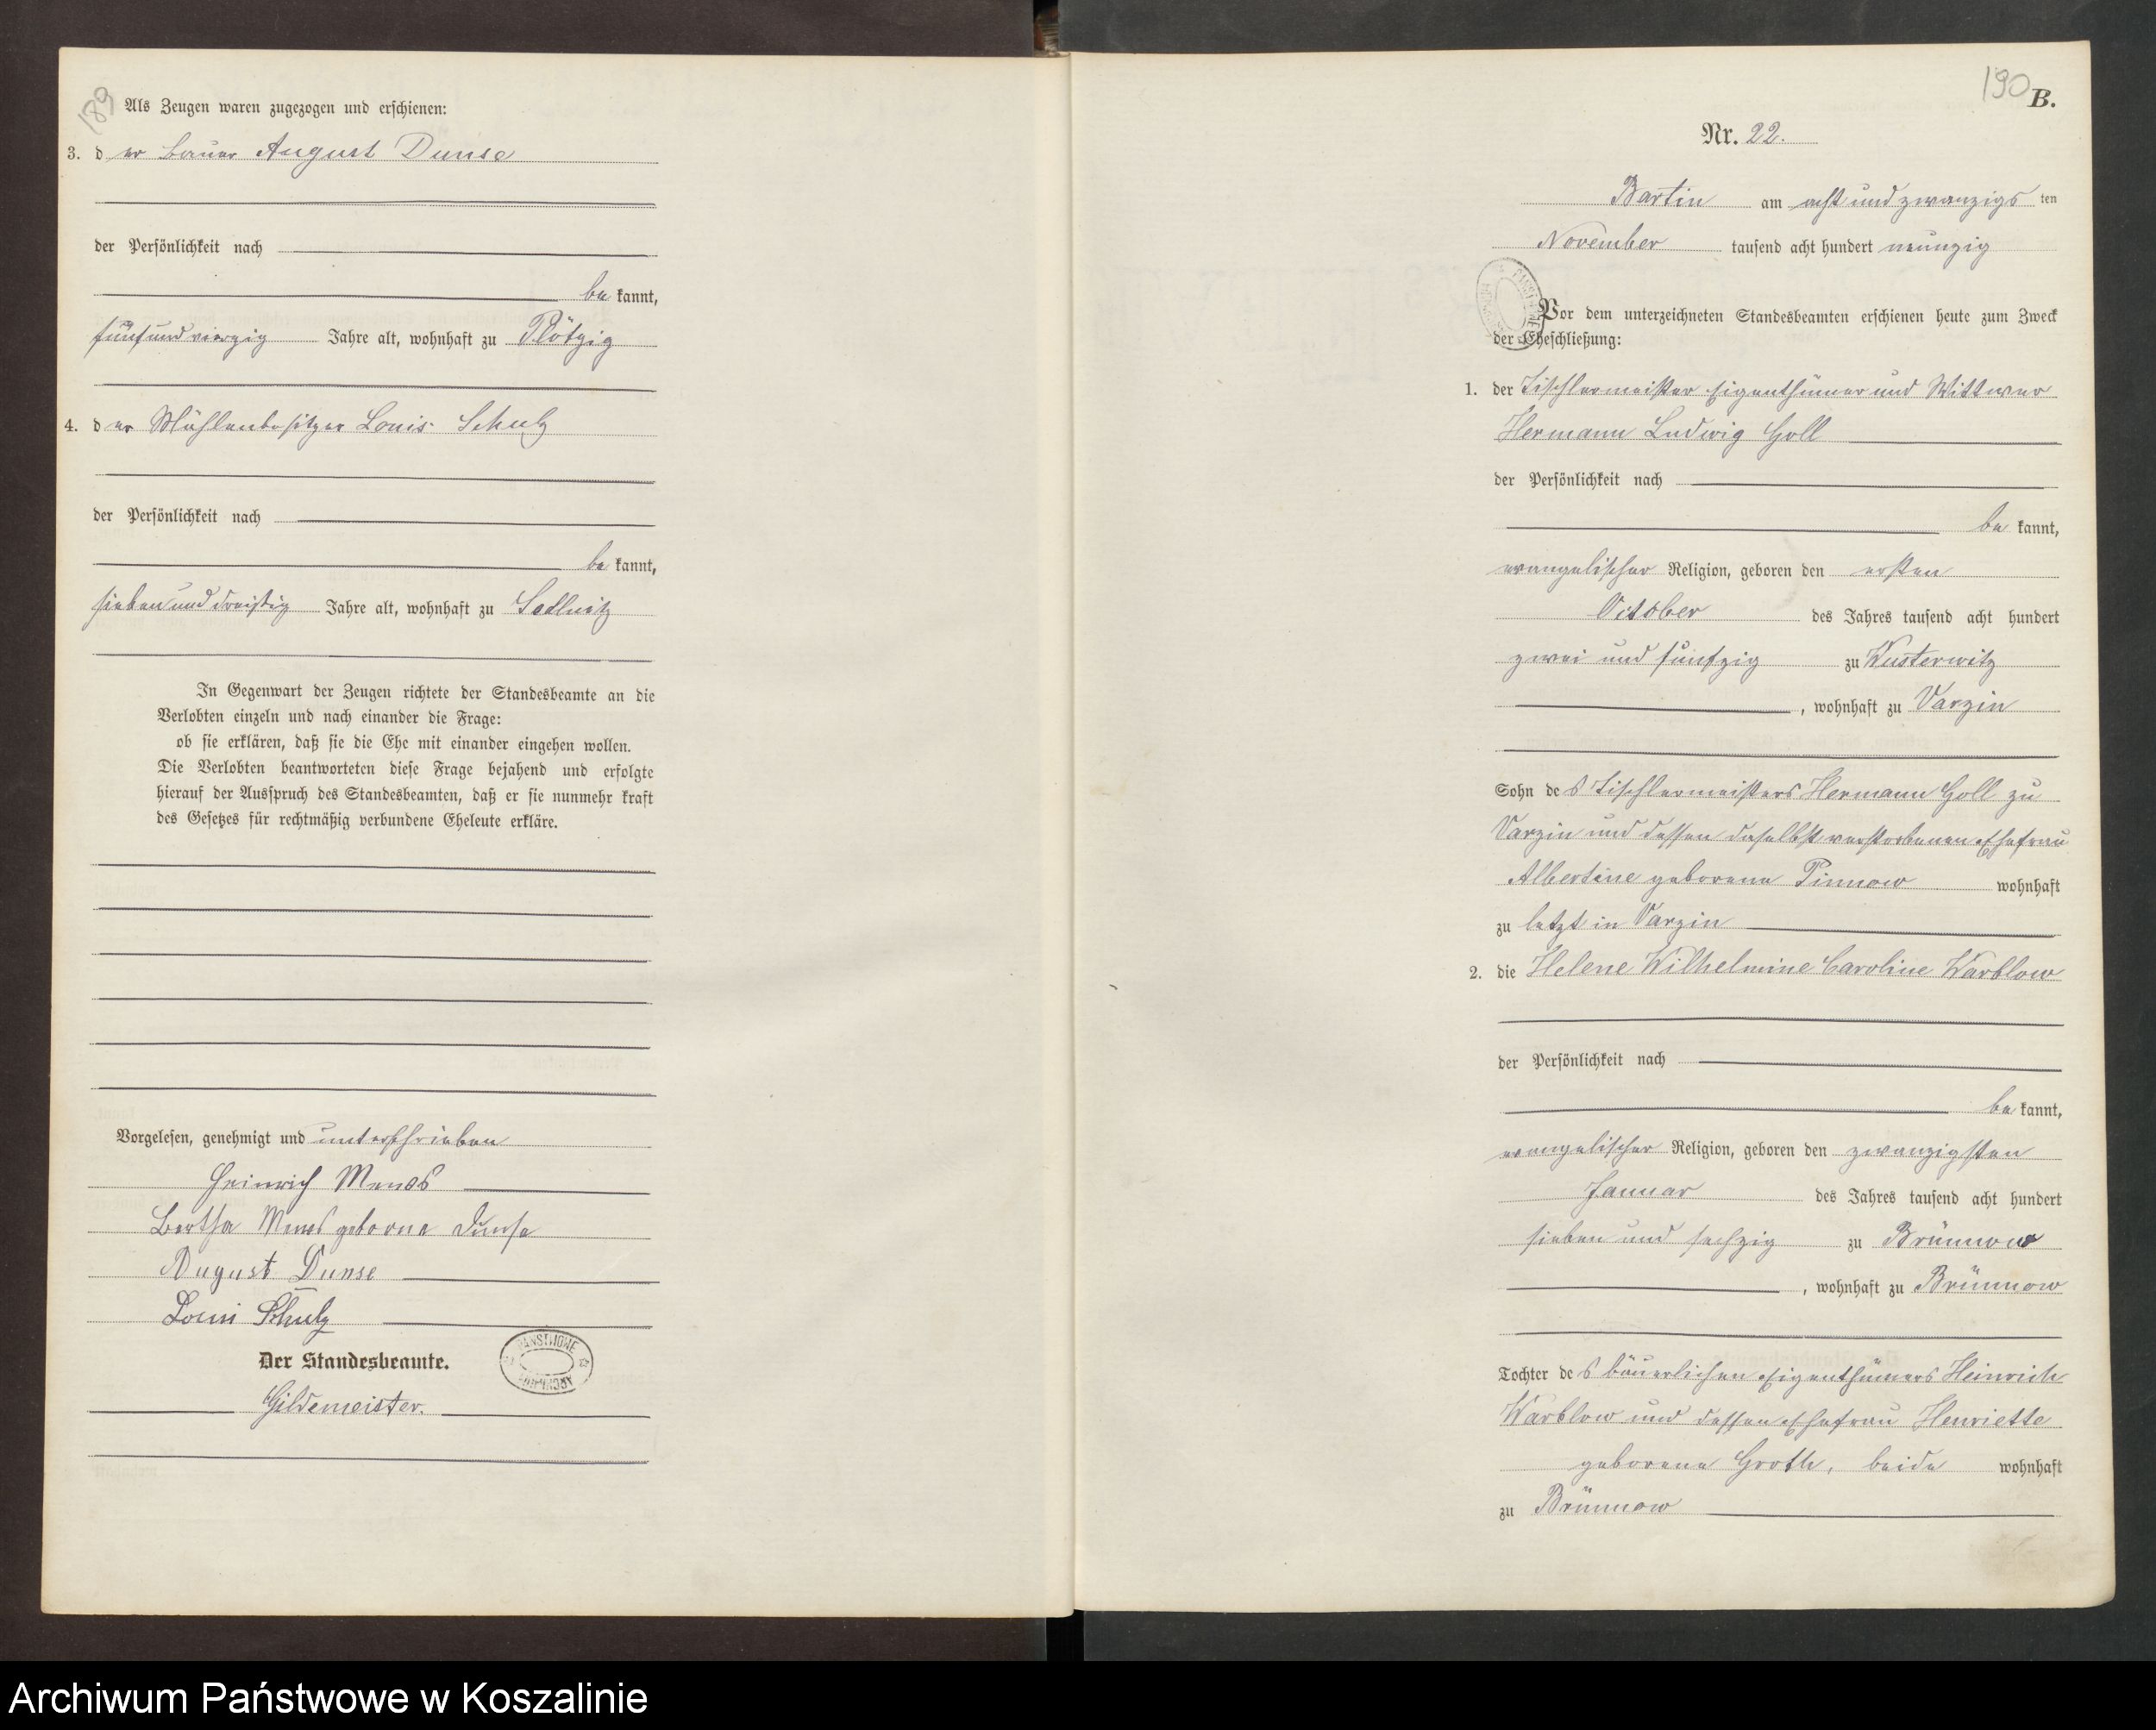 189
Als Zeugen waren zugezogen und erschienen:
3. der Bauer August Dunse
der Persönlichkeit nach
be kannt,
fünfundvierzig Jahre alt, wohnhaft zu Plötzig
4. der Mühlenbesitzer Louis Schulz
der Persönlichkeit nach
be kannt,
siebenunddreißig Jahre alt, wohnhaft zu Sellnitz
In Gegenwart der Zeugen richtete der Standesbeamte an die
Verlobten einzeln und nach einander die Frage:
ob sie erklären, daß sie die Ehe mit einander eingehen wollen.
Die Verlobten beantworteten diese Frage bejahend und erfolgte
hierauf der Ausspruch des Standesbeamten, daß er sie nunmehr kraft
des Gesetzes für rechtmäßig verbundene Eheleute erkläre.
Vorgelesen, genehmigt und unterschrieben
Heinrich Mews
Bertha Mews geborne Dunse
August Dunse
Loui Schulz
Der Standesbeamte.
Gildemeister.
190
B.
Nr. 22.
Bartin am acht und zwanzigs ten
November tausend acht hundert neunzig
Vor dem unterzeichneten Standesbeamten erschienen heute zum Zweck
der Eheschließung:
1. der Tischlermeister Eigenthümer und Wittwer
Hermann Ludwig Goll
der Persönlichkeit nach
be kannt,
evangelischer Religion, geboren den ersten
October des Jahres tausend acht hundert
zwei und fünfzig zu Wusterwitz
, wohnhaft zu Varzin
Sohn des Tischlermeisters Hermann Goll zu
Varzin und dessen daselbst verstorbenen Ehefrau
Albertine geborene Pinnow wohnhaft
zu letzt in Varzin
2. die Helene Wilhelmine Caroline Warblow
der Persönlichkeit nach
be kannt,
evangelischer Religion, geboren den zwanzigsten
Januar des Jahres tausend acht hundert
sieben und sechzig zu Brünnow
, wohnhaft zu Brünnow
Tochter des bäuerlichen Eigenthümers Heinrich
Warblow und dessen Ehefrau Henriette
geborene Groth, beide wohnhaft
zu Brünnow
Archiwum Państwowe w Koszalinie